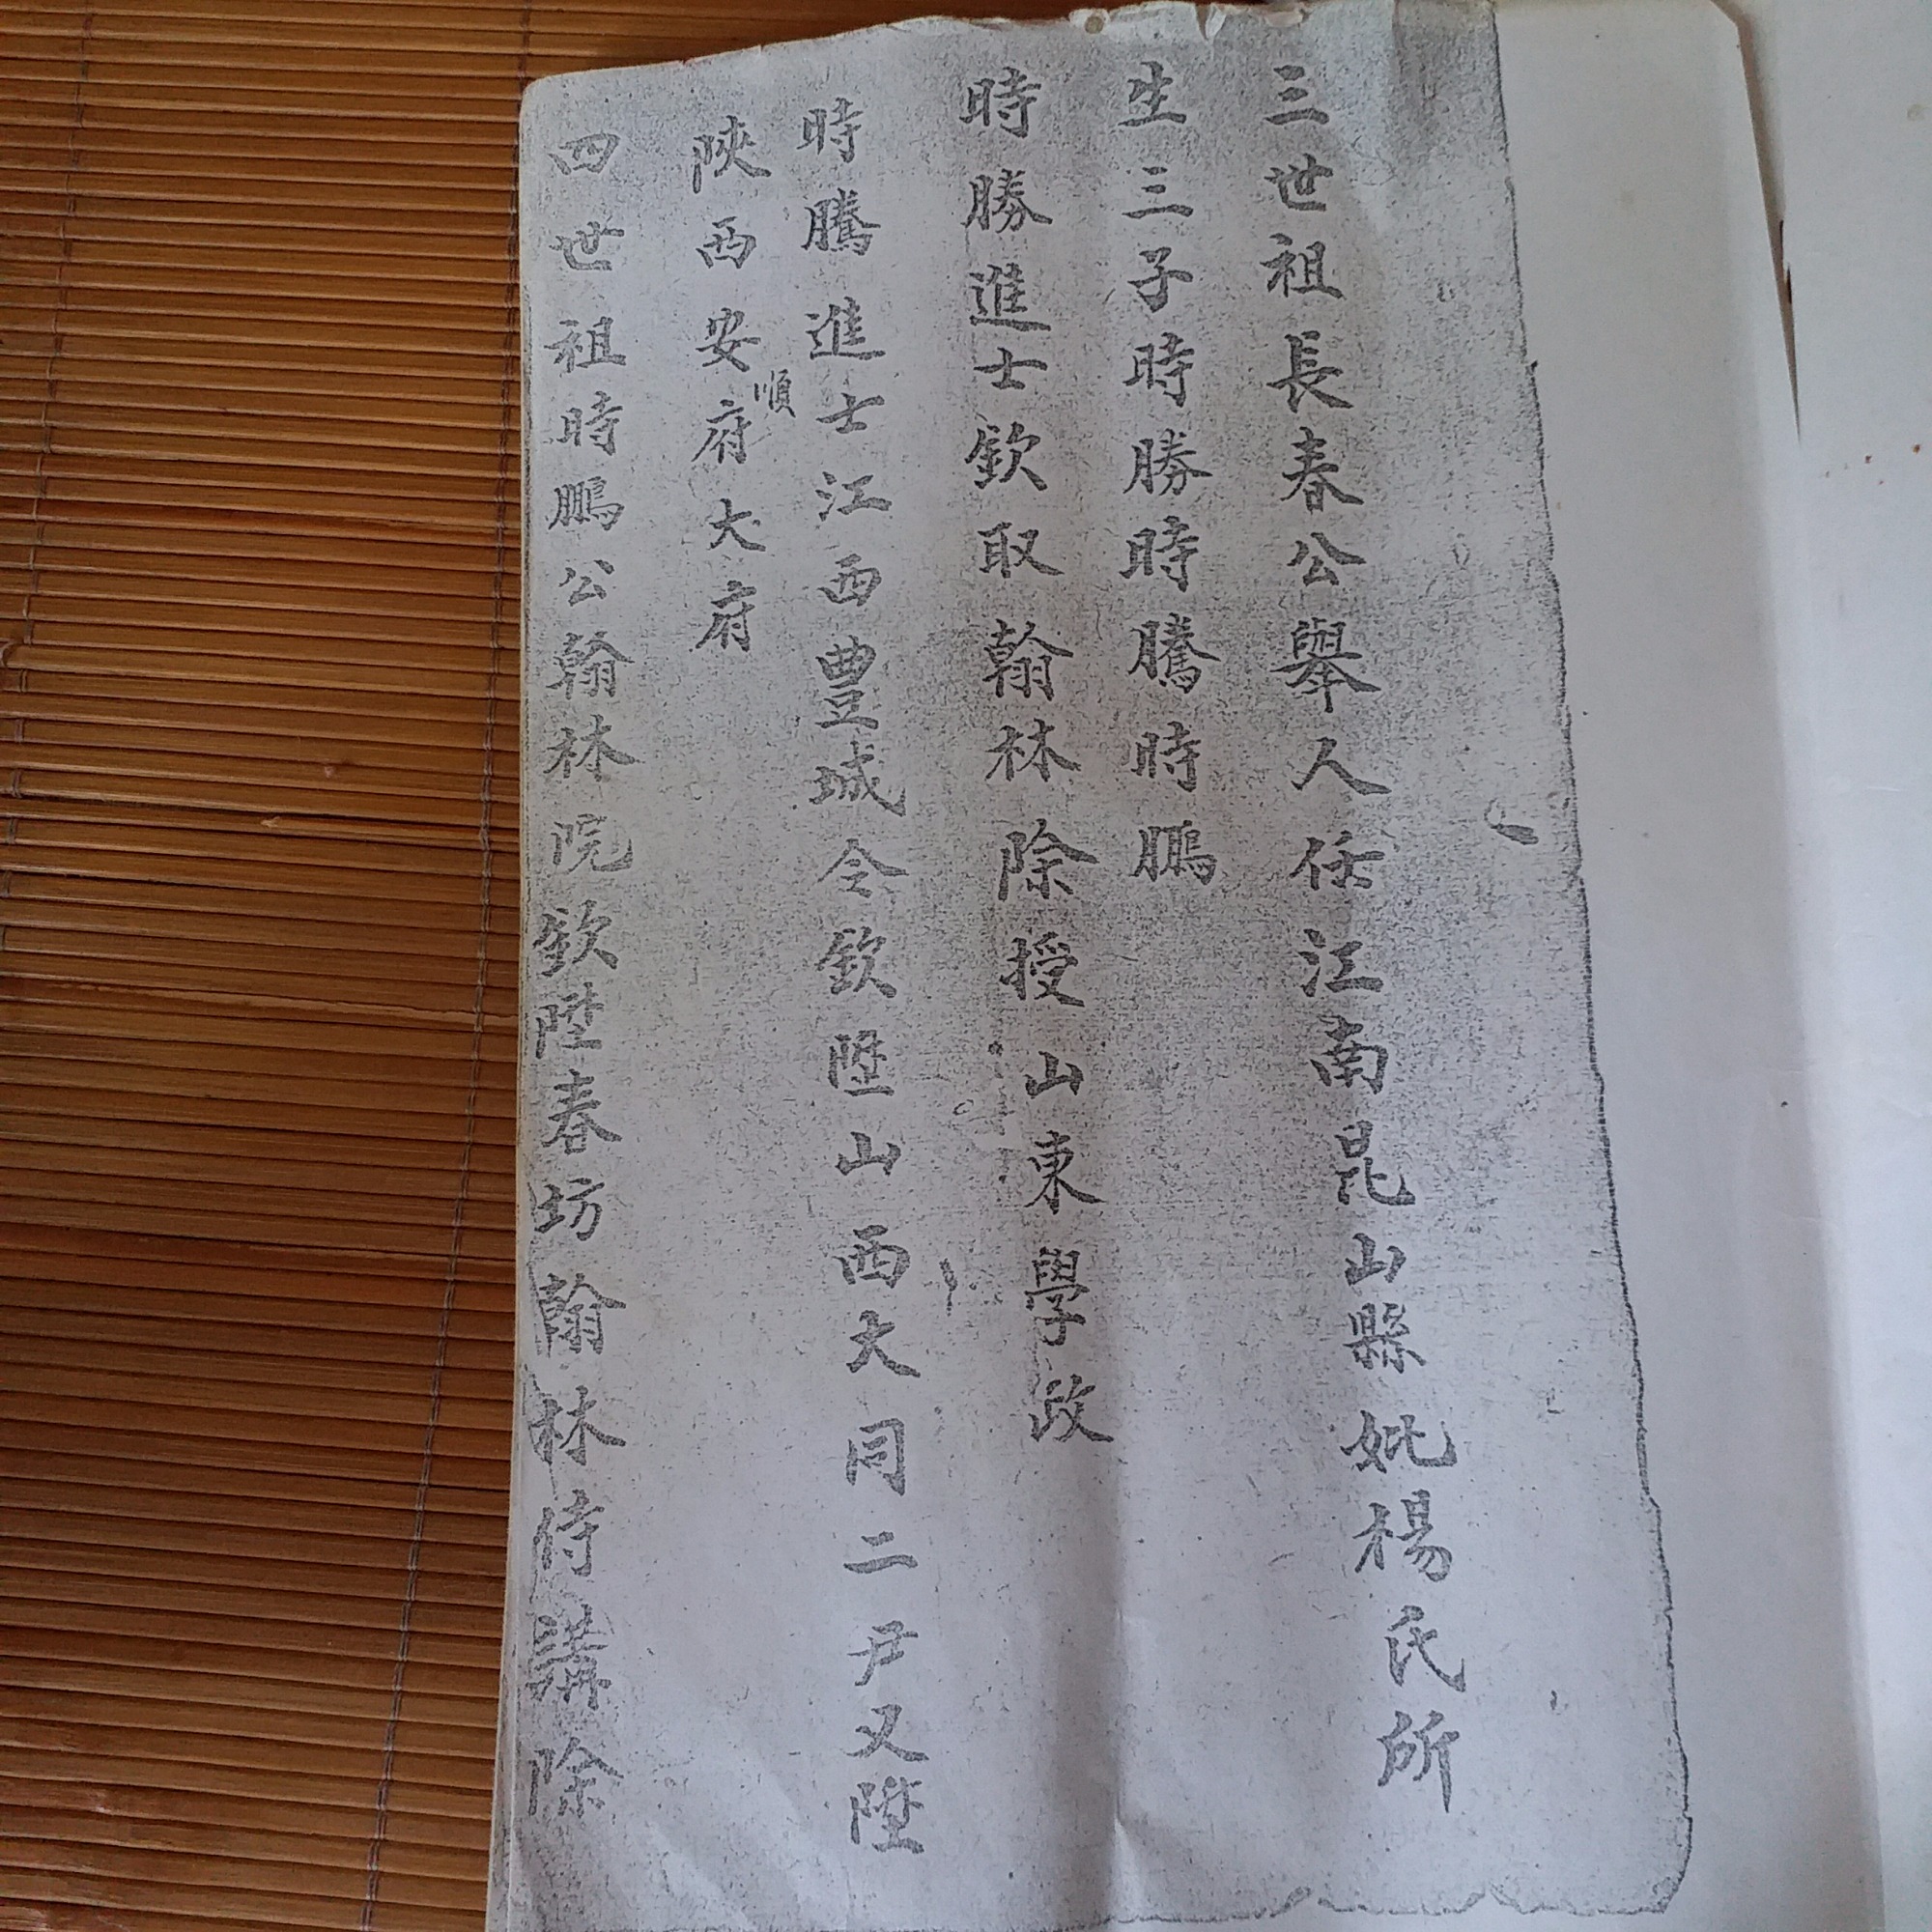 三世祖長春公舉人任江南昆山縣妣楊氏所
生三子時勝時騰時鵬
時勝進士欽取翰林除授山東學政
時騰進士江西豊城令欽陞山西大同二尹又陞
陝西安順府大府
四世祖時鵬公翰林院欽陞春坊翰林侍講除